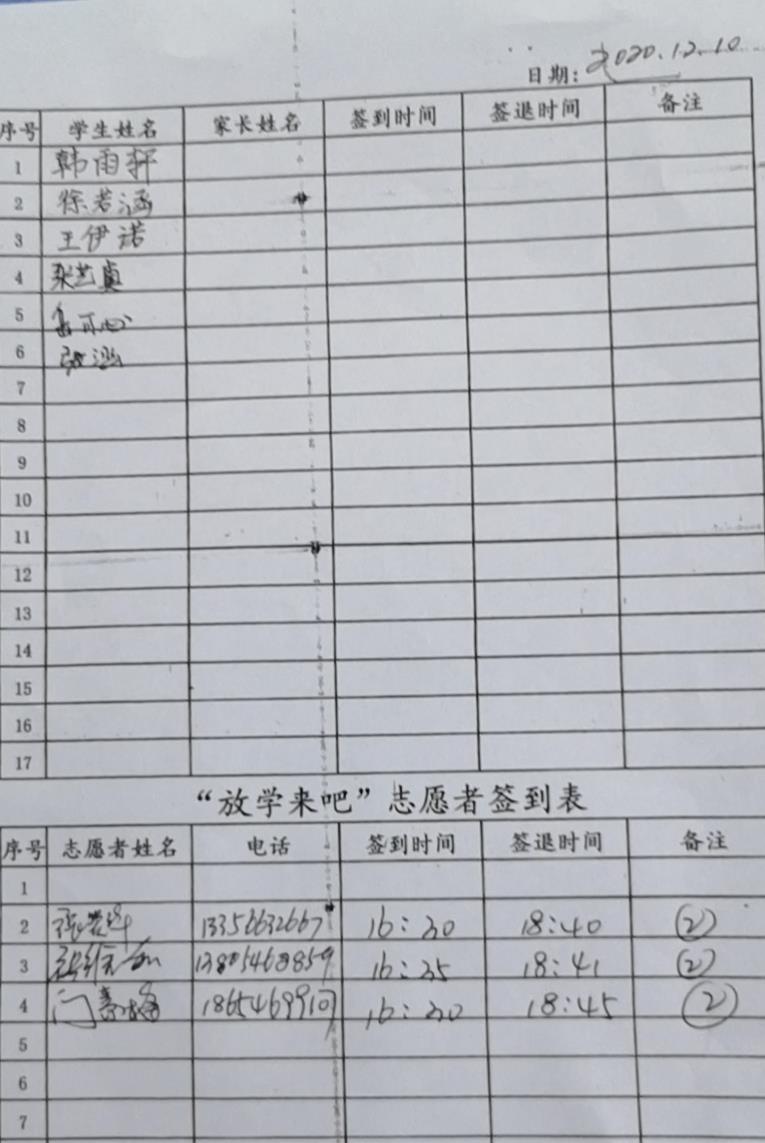 日期: 2020.12.10
序号 学生姓名 家长姓名 签到时间 签退时间 备注
1 韩雨轩
2 徐若涵
3 王伊诺
4 艺真
5 可心
6 张涵
7
8
9
10
11
12
13
14
15
16
17
“放学来吧”志愿者签到表
序号 志愿者姓名 电话 签到时间 签退时间 备注
1
2 13356632667 16:30 18:40 ②
3 13805468859 16:35 18:41 ②
4 门 16:30 18:45 ②
5
6
7